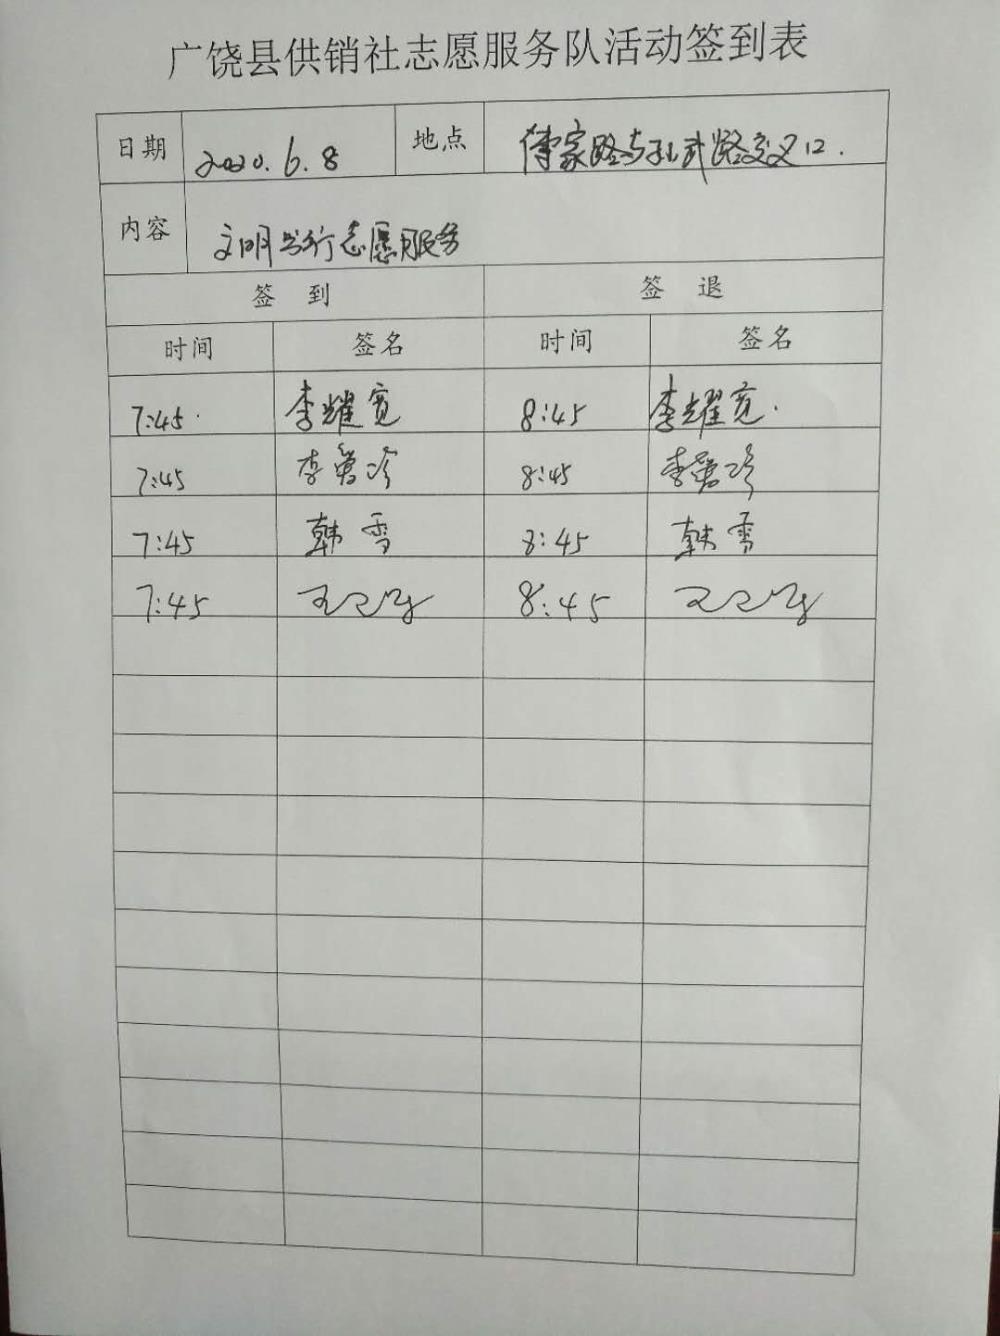 广饶县供销社志愿服务队活动签到表
日期 2020.6.8 地点 傅家路与孙武路交叉口.
内容 文明出行志愿服务
签 到 签 退
时间 签名 时间 签名
7:45. 李耀宽 8:45 李耀宽.
7:45 李 8:45 李
7:45 韩雪 8:45 韩雪
7:45 王 8:45 王